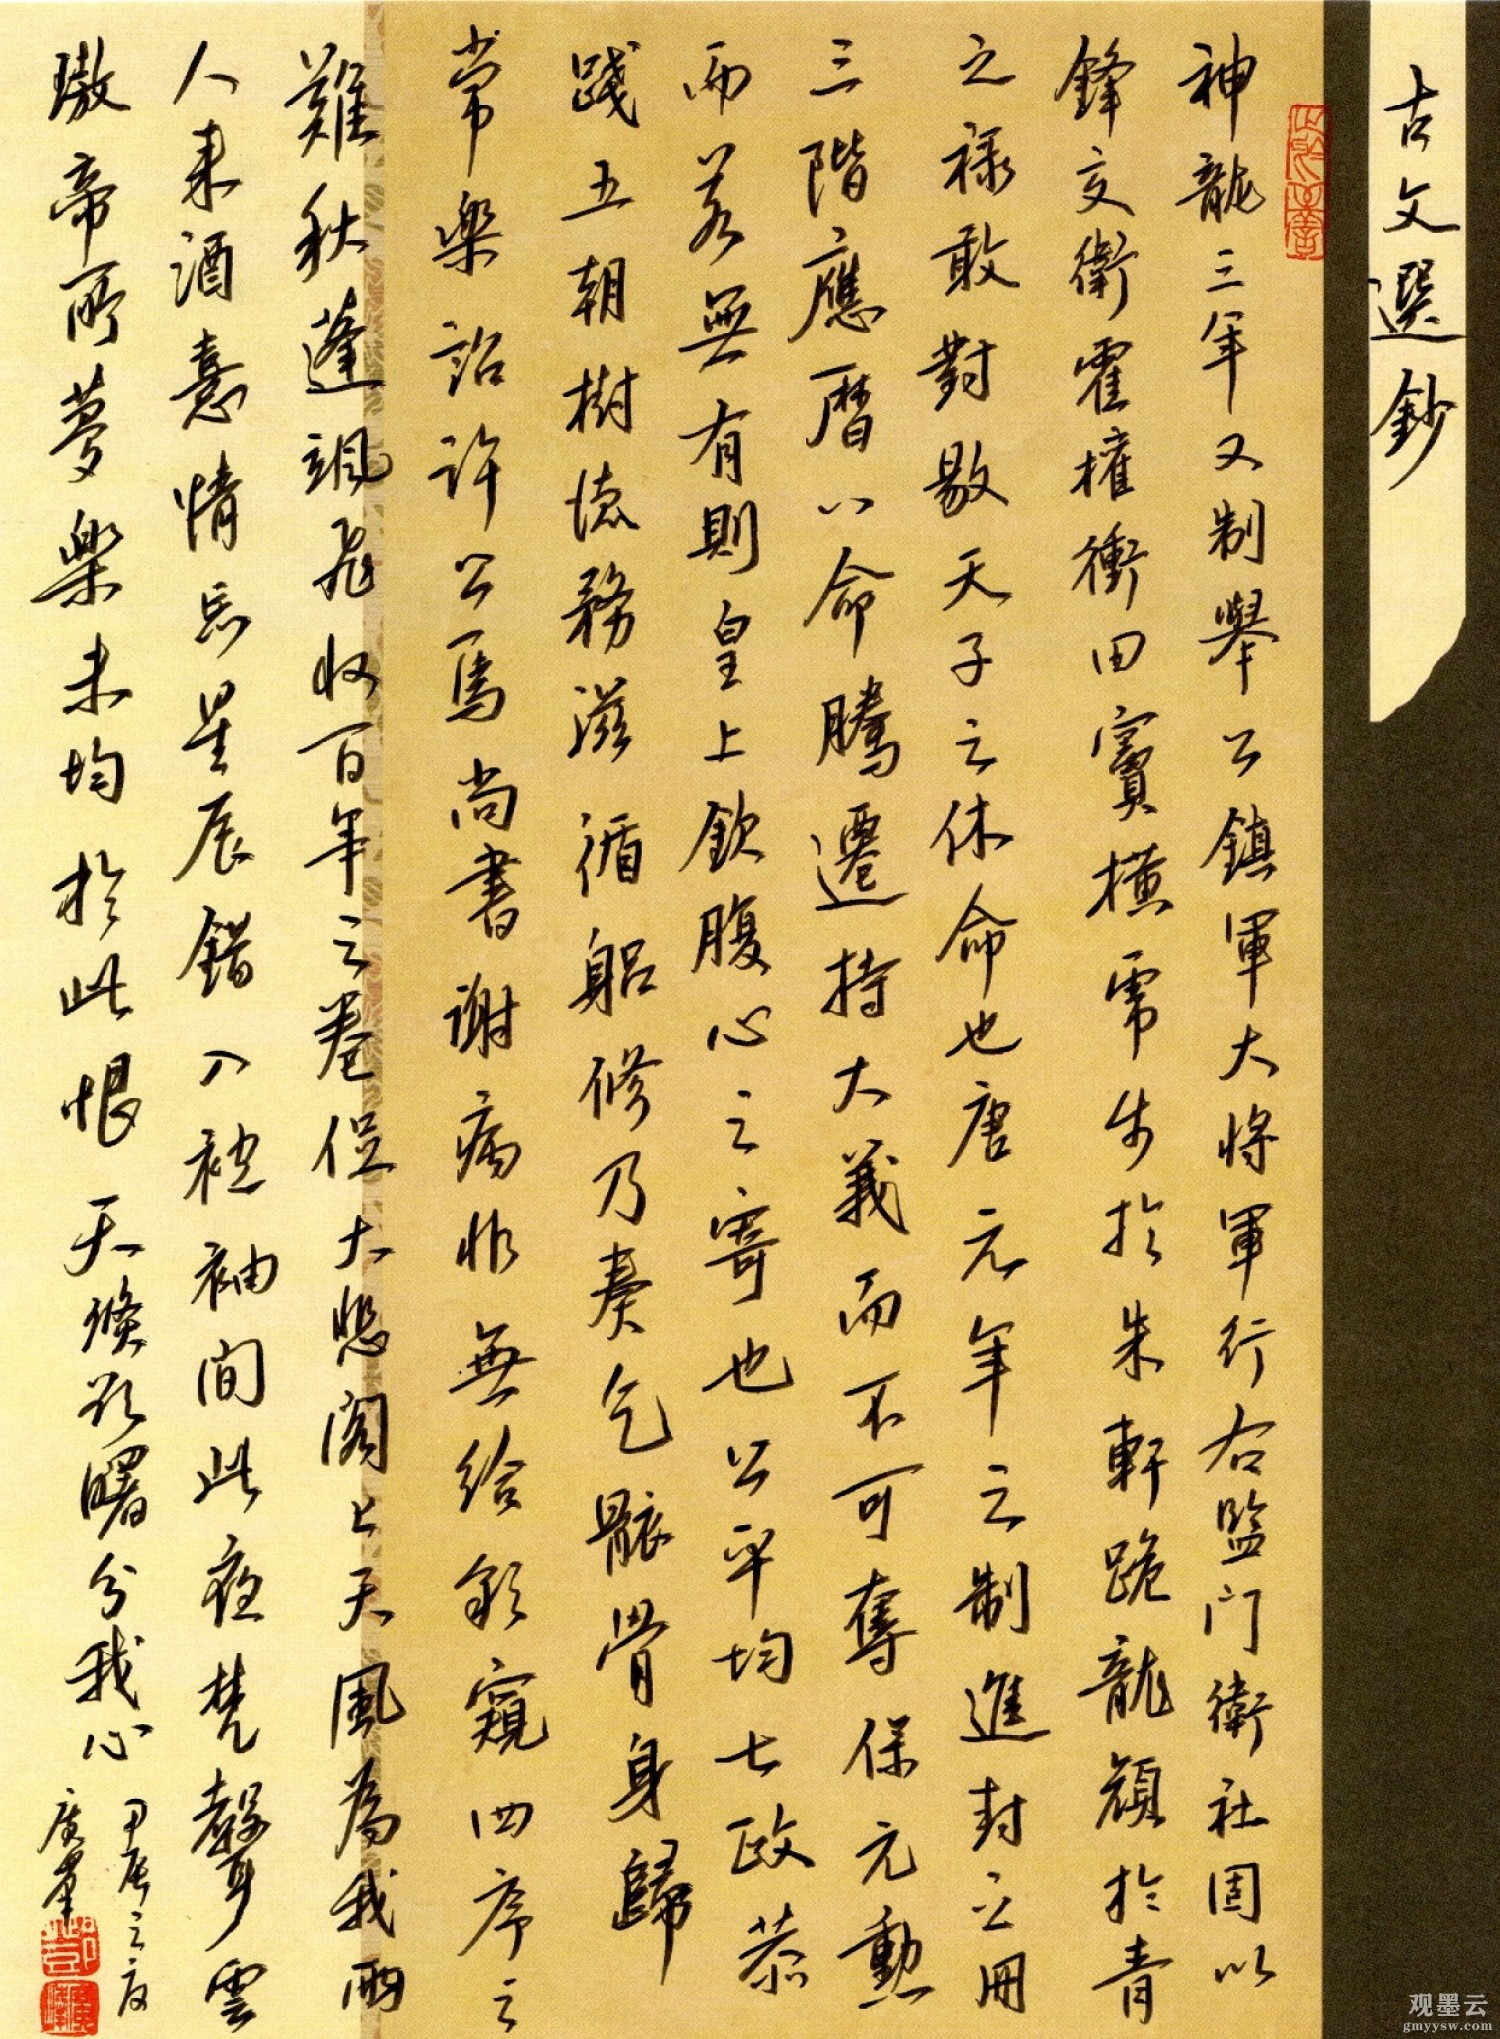 古文選鈔
神龍三年又制舉公鎮軍大將軍行右監門衛社固以
鋒交衛霍權衝田竇橫帶步於朱軒跪龍顏於青
之祿敢對敭天子之休命也唐元年之制進封之冊
三階應曆以命騰遷持大義而不可奪保元勳
而若無有則皇上欽腹心之寄也公平均七政恭
踐五朝樹德務滋循躬修乃奏乞骸骨身歸
常樂詔許公焉尚書謝病非無給窺四序之
難秋蓬颯飛收百年之卷促大悲閣上天風為我兩
人來酒意情忘星辰錯入袖間此夜梵聲雲
璈帝所夢樂未均於此恨天難曙分我心
甲辰之夜
廣華
观墨云
gmyysw.com